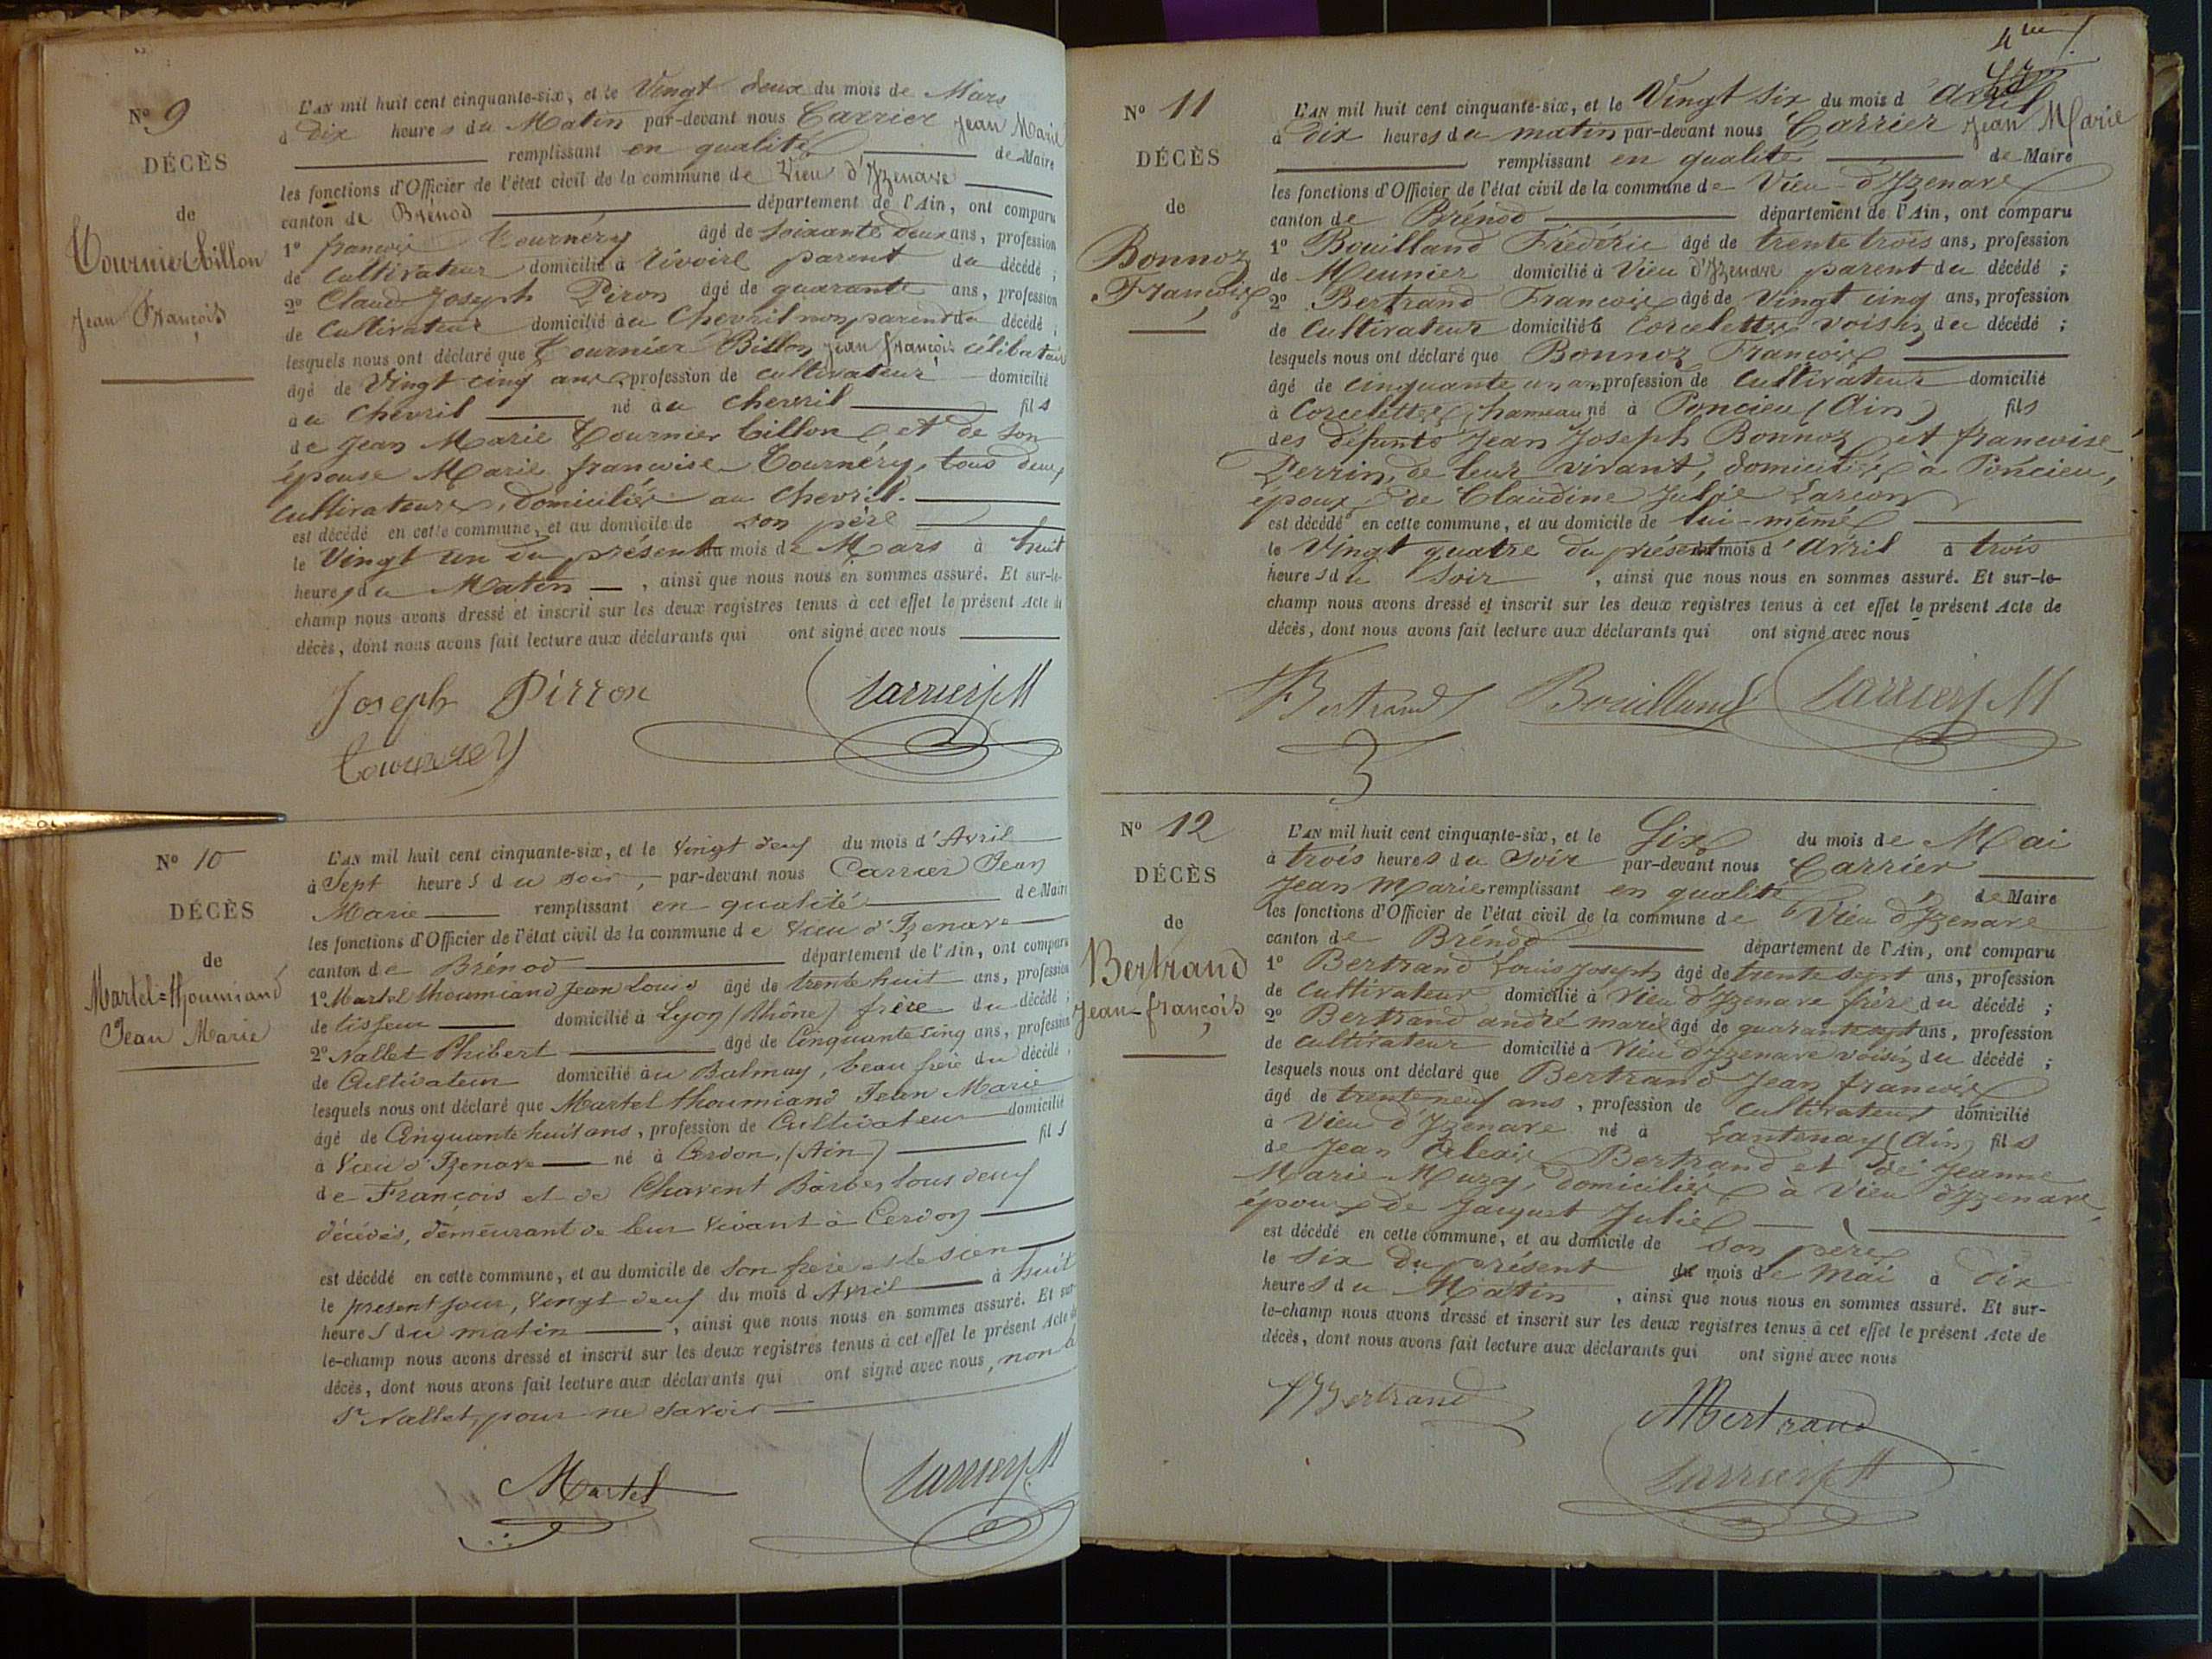 Nº 9
DÉCÈS
de
Tournier billon
Jean François
L'AN mil huit cent cinquante-six, et le Vingt deux du mois de Mars
à dix heures du Matin par-devant nous Carrier Jean Marie
remplissant en qualité de Maire
les fonctions d'Officier de l'état civil de la commune de Vieu d'Izenave
canton de Brénod département de l'Ain, ont comparu
1º françois Tournéry âgé de soixante deux ans, profession
de Cultivateur domicilié à rivoire parent du décédé ;
2º Claude Joseph Piron âgé de quarante ans, profession
de Cultivateur domicilié au Chevril non parent du décédé ;
lesquels nous ont déclaré que Tournier Billon jean françois célibataire
âgé de Vingt cinq ans, profession de cultivateur domicilié
au chevril né au chevril fils
de Jean Marie Tournier billon et de son
épouse Marie françoise Tournéry, tous deux
cultivateurs, domiciliés au chevril.
est décédé en cette commune, et au domicile de son père
le Vingt un du présent du mois de Mars à huit
heures du Matin, ainsi que nous nous en sommes assuré. Et sur-le-
champ nous avons dressé et inscrit sur les deux registres tenus à cet effet le présent Acte de
décès, dont nous avons fait lecture aux déclarants qui ont signé avec nous
Joseph Pirron
Carrier JM
Nº 10
DÉCÈS
de
Martel=thoumiand
Jean Marie
L'AN mil huit cent cinquante-six, et le Vingt deux du mois d'Avril
à Sept heures du soir, par-devant nous Carrier Jean
Marie remplissant en qualité de Maire
les fonctions d'Officier de l'état civil de la commune de Vieu d'Izenave
canton de Brénod département de l'Ain, ont comparu
1º Martel thoumiand Jean Louis âgé de trente huit ans, profession
de tisseur domicilié à Lyon (Rhône) frère du décédé ;
2º Nallet Phibert âgé de Cinquante cinq ans, profession
de Cultivateur domicilié au Balmay, beau frère du décédé ;
lesquels nous ont déclaré que Martel thoumiand Jean Marie
âgé de Cinquante huit ans, profession de Cultivateur domicilié
à Vieu d'Izenave né à Cerdon, (Ain) fils
de François et de Charent Barbe, tous deux
décédés, demeurant de leur vivant à Cerdon
est décédé en cette commune, et au domicile de son frère et le sien
le présent jour, Vingt deux du mois d'Avril à huit
heures du matin, ainsi que nous nous en sommes assuré. Et sur-
le-champ nous avons dressé et inscrit sur les deux registres tenus à cet effet le présent Acte de
décès, dont nous avons fait lecture aux déclarants qui ont signé avec nous, non
Sr Nallet, pour ne savoir
Martel
Carrier JM
Nº 11
DÉCÈS
de
Bonnoz
François
L'AN mil huit cent cinquante-six, et le Vingt six du mois d'Avril
à dix heures du matin par-devant nous Carrier Jean Marie
remplissant en qualité de Maire
les fonctions d'Officier de l'état civil de la commune de Vieu-d'Izenave
canton de Brénod département de l'Ain, ont comparu
1º Bouilland Frédéric âgé de trente trois ans, profession
de Meunier domicilié à Vieu d'Izenave parent du décédé ;
2º Bertrand François âgé de Vingt cinq ans, profession
de Cultivateur domicilié à Corcelettes voisin du décédé ;
lesquels nous ont déclaré que Bonnoz François
âgé de cinquante un ans, profession de Cultivateur domicilié
à Corcelettes, hameau né à Poncieu (Ain) fils
des défunts Jean Joseph Bonnoz et françoise
Perrin, de leur vivant, domiciliés à Poncieu,
époux de Claudine Julie Larçon
est décédé en cette commune, et au domicile de lui-même
le Vingt quatre du présent du mois d'Avril à trois
heures du Soir, ainsi que nous nous en sommes assuré. Et sur-le-
champ nous avons dressé et inscrit sur les deux registres tenus à cet effet le présent Acte de
décès, dont nous avons fait lecture aux déclarants qui ont signé avec nous
Bertrand Bouilland Carrier JM
Nº 12
DÉCÈS
de
Bertrand
Jean-françois
L'AN mil huit cent cinquante-six, et le Six du mois de Mai
à trois heures du Soir par-devant nous Carrier
Jean Marie remplissant en qualité de Maire
les fonctions d'Officier de l'état civil de la commune de Vieu d'Izenave
canton de Brénod département de l'Ain, ont comparu
1º Bertrand Louis Joseph âgé de trente sept ans, profession
de Cultivateur domicilié à Vieu d'Izenave frère du décédé ;
2º Bertrand andré marie âgé de quarante sept ans, profession
de cultivateur domicilié à Vieu d'Izenave voisin du décédé ;
lesquels nous ont déclaré que Bertrand Jean françois
âgé de trente neuf ans, profession de Cultivateur domicilié
à Vieu d'Izenave né à Lantenay (Ain) fils
de Jean Bertrand et de Jeanne
Marie Muzy, domiciliés à Vieu d'Izenave,
époux de Jacquet Julie
est décédé en cette commune, et au domicile de son père
le six du présent du mois de Mai à dix
heures du Matin, ainsi que nous nous en sommes assuré. Et sur-
le-champ nous avons dressé et inscrit sur les deux registres tenus à cet effet le présent Acte de
décès, dont nous avons fait lecture aux déclarants qui ont signé avec nous
Bertrand
AMBertrand
Carrier JM